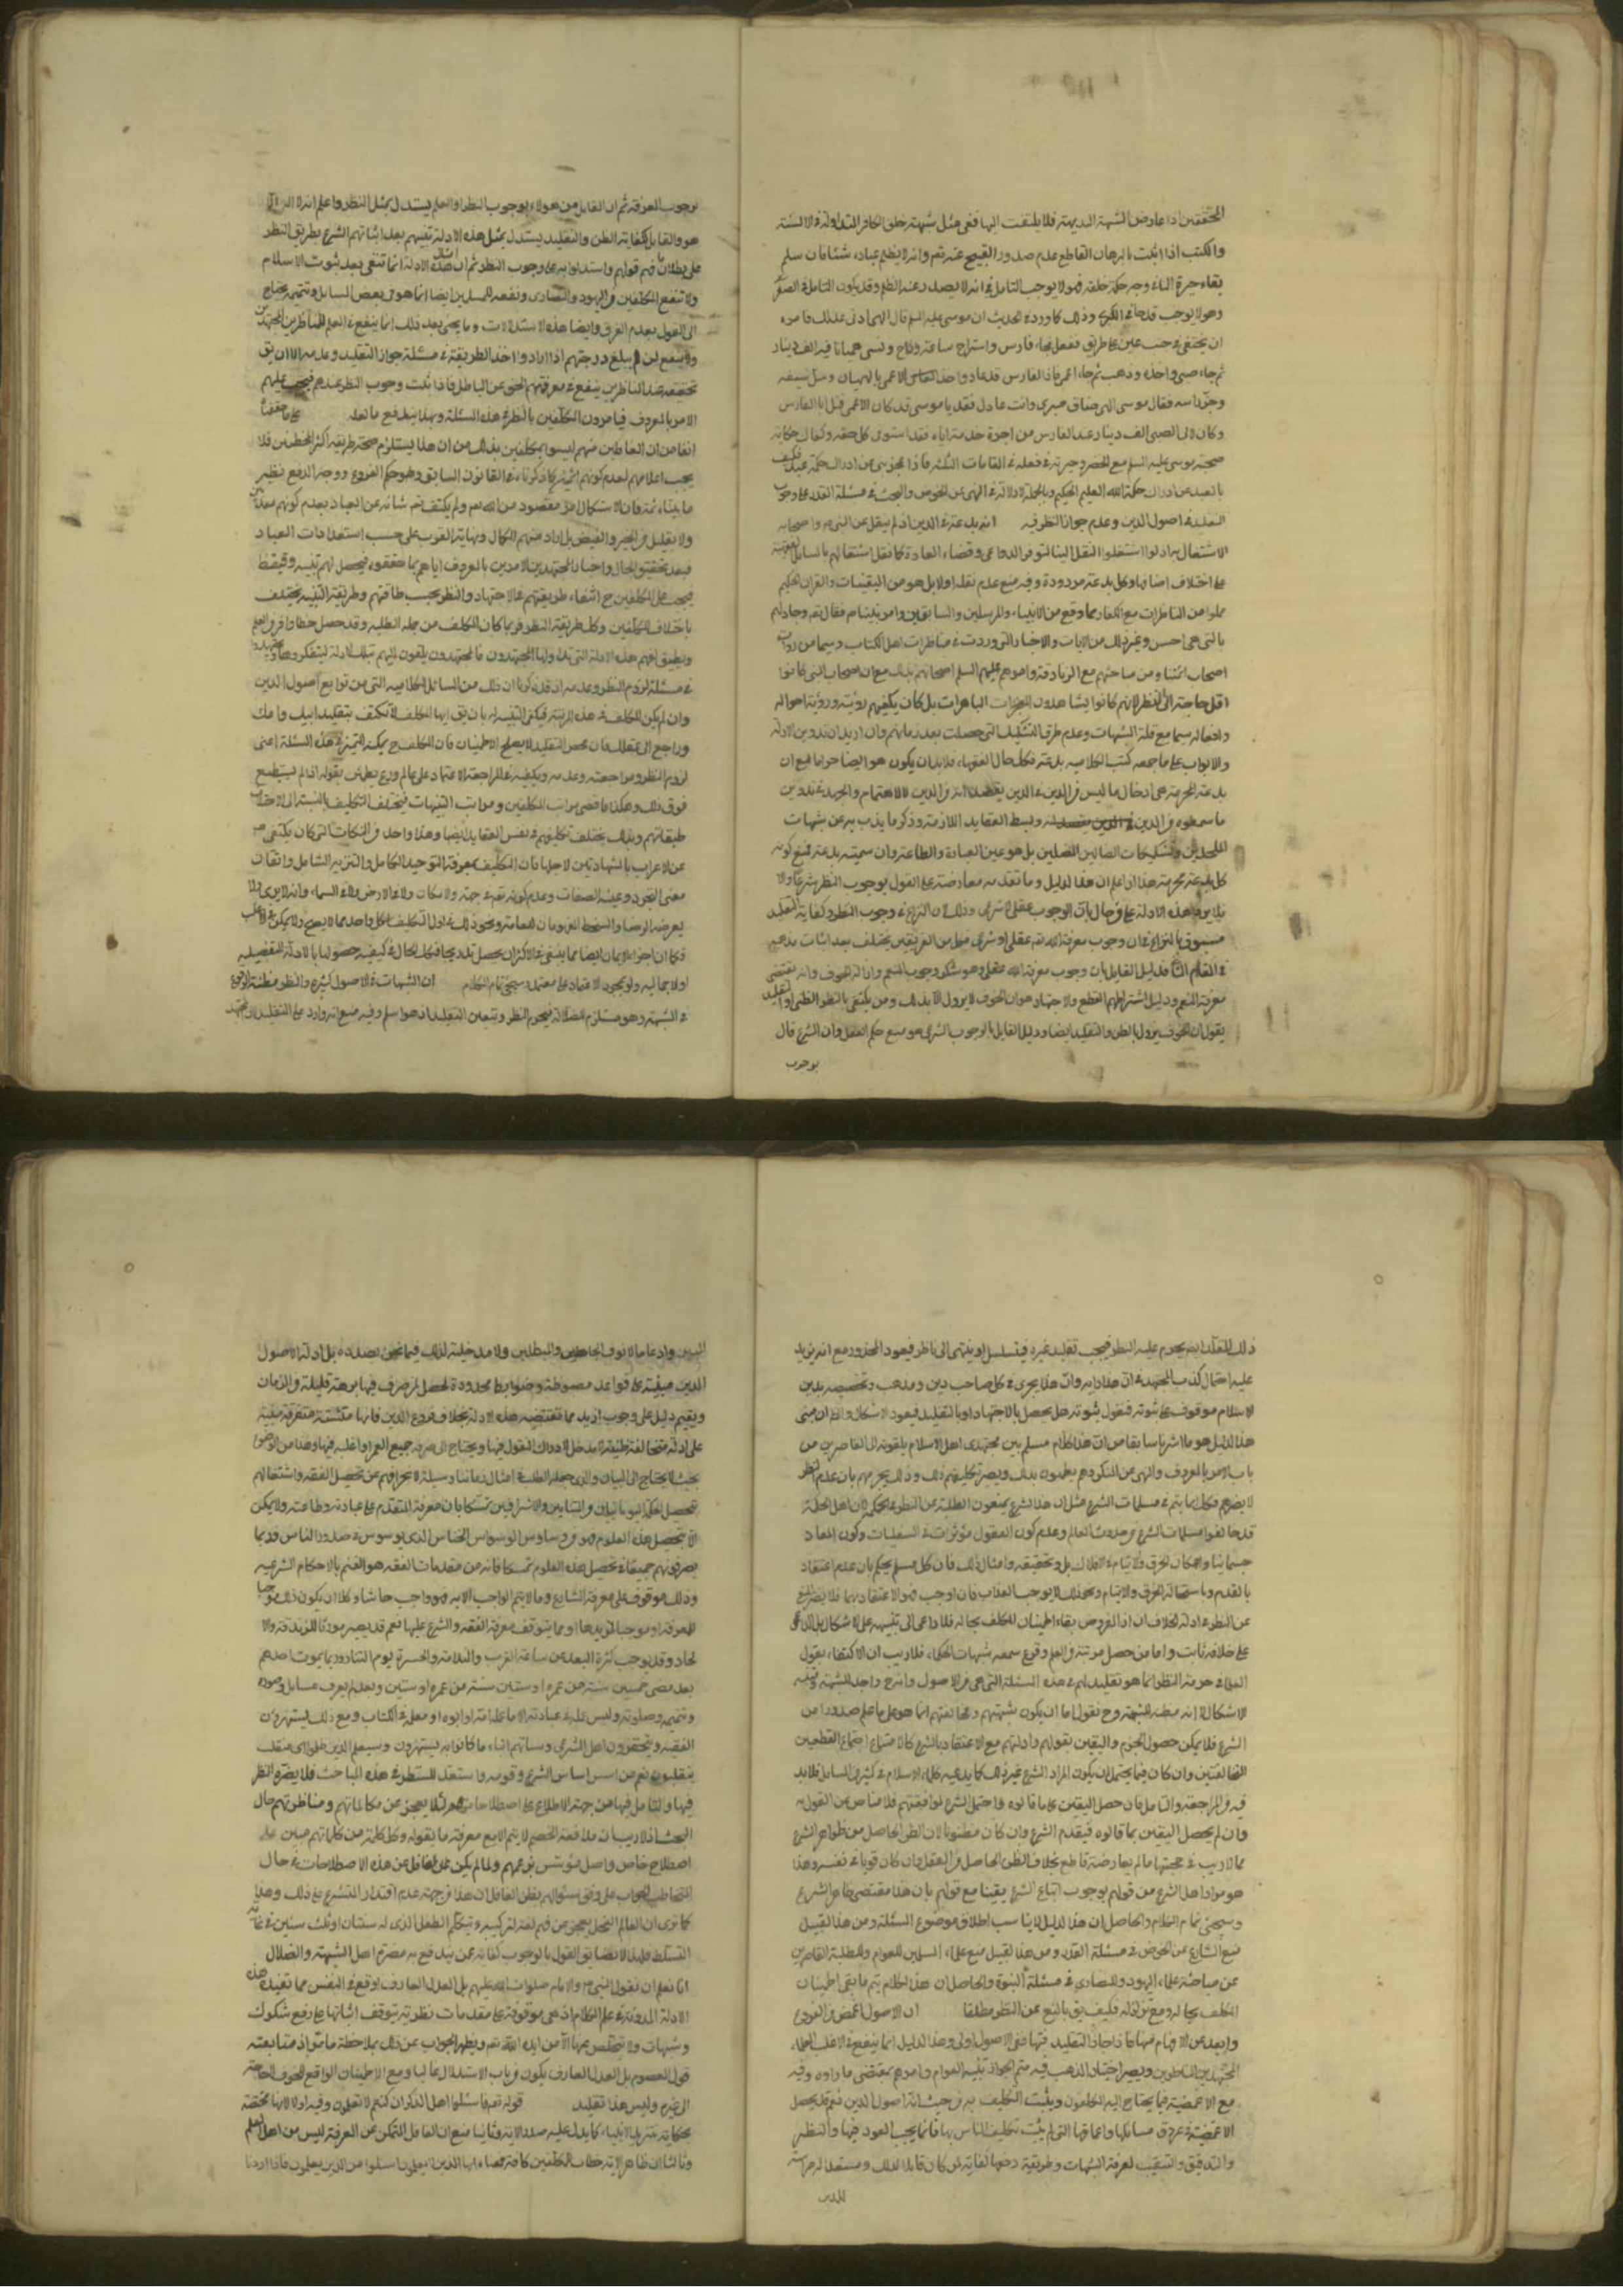 المحققين اذا عارض الشبهة البديهة فلا يلتفت اليها ففي مثل شبهة خلق الكافر المتداولة في الالسنة
والكتب اذا اثبت بالبرهان القاطع عدم صدور القبيح عنه تعم وانه لا يظلم عباده شيئا فان سلم
بقاء حيرة الناء وجه حكمة خلقه فهو لا يوجب التامل في انه لا يصدر عنه الظلم وقد يكون التامل في الصغر
وهو لا يوجب قدحا في الكبرى وذلك كما ورد في الحديث ان موسى عليه السلم قال الهي ارني عدلك فامره
ان يختفي في جنب عين على طريق ففعل فجاء فارس واستراح ساعة وراح ونسى هميانا فيه الف دينار
ثم جاء صبي واخذه وذهب ثم جاء اعمى فاذا الفارس قد عاد واخذ الاعمى بالهميان وسل سيفه
وجز راسه فقال موسى الهي ضاق صبري وانت عادل فقد يا موسى قد كان الاعمى قتل ابا الفارس
وكان لابي الصبي الف دينار عند الفارس من اجرة خدمته اياه فقد استوفى كل حقه وكفاك حكاية
صحبة موسى عليه السلم مع الخضر وحيرته في فعله في المقامات الثلثة فاذا عجز موسى عن ادراك حكمة عبد فكيف
بالعبد عن ادراك حكمة الله العليم الحكيم وبالجملة لا دلالة في النهي عن الخوض والبحث في مسئلة القدر على وجوب
التقليد في اصول الدين وعدم جواز النظر فيه انه بدعة في الدين اذ لم ينقل عن النبي ص واصحابه
الاشتغال به اذ لو اشتغلوا لنقل الينا لتوفر الدواعي وقضاء العادة كما نقل اشتغالهم بالمسايل الفقهية
على اختلاف اصنافها وكل بدعة مردودة وفيه منع عدم نقله اولا بل هو من اليقينيات والقران الحكيم
مملوا من المناظرات مع الكفار مما وقع من الانبياء والمرسلين والسابقين وامر نبينا ص فقال تعم وجادلهم
بالتي هي احسن وغير ذلك من الايات والاخبار التي وردت في مناظرات اهل الكتاب وسيما من روات
اصحاب ائمتنا ومن مباحثهم مع الزنادقة وامرهم عليهم السلم اصحابهم بذلك مع ان اصحاب النبي كانوا
اقل حاجة الى النظر لانهم كانوا يشاهدون المعجزات الباهرات بل كان يكفيهم رؤيته ورؤية احواله
وافعاله سيما مع قلة الشبهات وعدم طرق التشكيك التي حصلت بعد زمانهم وان اريد ان تدوين الادلة
والابواب على ما جمعه كتب الكلامية بدعة فكك حال الفقهاء فلا بد ان يكون هو ايضا حراما مع ان
بدعة المحرمة هي ادخال ما ليس في الدين في الدين بقصد انه في الدين لا الاهتمام والجهد في تدوين
ما سمعوه في الدين وبسط العقايد اللازمة وذكر ما يذب به عن شبهات
الملحدين وتشكيكات الضالين المضلين بل هو عين العبادة والطاعة وان سميته بدعة فنمنع كونه
كل بدعة محرمة هذا اذا علم ان هذا الدليل وما تقدمه معارضة على القول بوجوب النظر شرعا ولا
يلايم هذه الادلة على من قال بان الوجوب عقلي لا شرعي وذلك لان النزاع في وجوب النظر وكفاية التقليد
مسبوق بالنزاع في ان وجوب معرفة الله تعم عقلي او شرعي فكل من الفريقين يختلف بعد اثبات مذهبه
في المقام الثاني فدليل القايل بان وجوب معرفة الله عقلي وهو شكر وجوب المنعم وازالة الخوف وانه يقتضي
معرفة المنعم ودليل اشتراطهم القطع والاجتهاد هو ان الخوف لا يزول الا بذلك ومن يكتفي بالنظر الظني او التقليد
يقول ان الخوف يزول بالظن والتقليد ايضا ودليل القايل بالوجوب الشرعي هو منع حكم العقل وان الشرع قال
بوجوب
بوجوب المعرفة ثم ان القايل من هؤلاء بوجوب النظر او العلم يستدل بمثل النظر واعلم انه لا اله الا
هو والقايل بكفاية الظن والتقليد يستدل بمثل هذه الادلة تفيهم بعد اثباتهم الشرع بطريق النظر
على بطلان فهم قولهم واستدلوا به على وجوب النظر ثم ان امثال هذه الادلة انما تنفي بعد ثبوت الاسلام
ولا تنفع المكلفين من اليهود والنصارى ونفعه للمسلمين ايضا انما هو في بعض المسايل وتتميمه يحتاج
الى القول بعدم الفرق وايضا هذه الاستدلالات وما يجئ بعد ذلك انما ينفع في العلم للناظرين المجتهدين
ولا ينفع لمن لم يبلغ درجتهم اذا ارادوا اخذ الطريقة في مسئلة جواز التقليد وعدمه الا ان يق
تحقيقه عند الناظرين ينفع في معرفتهم الحق عن الباطل فاذا ثبت وجوب النظر عندهم فيجب عليهم
الامر بالمعروف فيامرون المكلفين بالنظر في هذه المسئلة وبهذا يندفع ما لعله على ما حققنا
انفا من ان الغافلين منهم ليسوا بمكلفين بذلك من ان هذا يستلزم صحة طريقة اكثر المخطئين فلا
يجب اعلامهم لعدم كونهم اثمين كما ذكرناه في القانون السابق وهو حكم الفروع ووجه الدفع نظير
ما بيناه ثمة فان الاستكمال امر مقصود من الله تعم ولم يكتف تعم شانه عن العباد بعدم كونهم معذبين
ولا بقليل من الخير والفيض بل اراد منهم الكمال ونهاية القرب على حسب استعدادات العباد
فبعد تحقيق الحال واخبار المجتهدين الامرين بالمعروف اياهم بما حققوه فيحصل لهم تنبيه وتيقظ
فيجب على المكلفين ح اقتفاء طريقتهم في الاجتهاد والنظر بحسب طاقتهم وطريقة التنبيه يختلف
باختلاف المكلفين وكك طريقة النظر فربما كان المكلف من جملة الطلبة وقد حصل حظا وافرا من العلم
ويطيق لفهم هذه الادلة التي تداولها المجتهدون فالمجتهدون يلقون اليهم تلك الادلة ليتفكروها ويجتهدوا
في مسئلة لزوم النظر وعدمه اذ قد ذكرنا ان ذلك من المسائل الكلامية التي من توابع اصول الدين
وان لم يكن المكلف في هذه المرتبة فيكفي التنبيه له بان يق ايها المكلف لا تكتف بتقليد ابيك وامك
وراجع الى عقلك فان محض التقليد لا يصلح الاطمينان فان المكلف ح يمكنه التميز في هذه المسئلة اعني
لزوم النظر ومراجعته وعدمه ويكفيه في المراجعة الاعتماد على عالم ورع يطمئن بقوله اذا لم يستطع
فوق ذلك وهكذا فاقض مراتب المكلفين ومراتب التنبيهات فيختلف التكليف بالنسبة الى اختلاف
طبقاتهم وبذلك يختلف تكليفهم في نفس العقايد ايضا وهذا واحد من النكات التي كان يكتفي ص
عن الاعراب بالشهادتين لاجلها فان التكليف بمعرفة التوحيد الكامل والتنزيه الشامل واتقان
معنى التجرد وعينية الصفات وعدم كونه تعم في جهة ولا مكان ولا في الارض ولا في السماء وانه لا يرى ولا
يعرضه الرضا والسخط المفهومان للعامة ونحو ذلك في اول التكليف لكل واحد مما لا يصح ولا يمكن في الاغلب
فكما ان اجزاء الايمان ايضا مما ينبغي في الاكثر ان يحصل تدريجا فكك الحال في كيفية حصولها بالادلة التفصيلية
او الاجمالية ولو بمجرد الاعتماد على معتمد وسيجئ تمام الكلام ان الشبهات في الاصول كثيرة والنظر مظنة الوقوع
في الشبهة وهو مستلزم للضلالة فيحرم النظر ويتعين التقليد اذ هو اسلم وفيه منع انه وارد على التقليد لان مجتهد
ذلك المقلد ايضا يحرم عليه النظر فيجب تقليد غيره فيتسلسل او ينتهي الى ناظر فيعود المحذور مع انه يزيد
عليه احتمال كذب المجتهد في ان هذا دابه وان هذا يجري في كل صاحب دين ومذهب وتخصيصه بدين
الاسلام موقوف على ثبوته فنقول ثبوته هل يحصل بالاجتهاد او بالتقليد فيعود الاشكال والظ ان مبنى
هذا الدليل هو ما اشرنا سابقا من ان هذا كلام مسلم بين مجتهدي اهل الاسلام يلقونه الى القاصرين من
باب الامر بالمعروف والنهي عن المنكر وهم يعلمون بذلك ويصير تكليفهم ذلك وذلك يخبرهم بان عدم النظر
لا يضرهم فكك انما يتم في مسلمات الشرع مثل ان هذا لشرع يمنعون الطلبة عن النظر في الحكمة لان اهل الحكمة
قد خالفوا مسلمات الشرع من حدوث العالم وعدم كون العقول مؤثرات في السفليات وكون المعاد
جسمانيا وامكان الخرق والالتيام في الافلاك بل وتحقيقه وامثال ذلك فان كل مسلم يحكم بان عدم اعتقاد
بالقدم وباستحالة الخرق والالتيام ونحو ذلك لا يوجب العذاب فان اوجب فهو الاعتقاد بهما فلا يضر المنع
عن النظر في ادلة الخلاف ان اذا المفروض بقاء اطمينان المكلف بحاله فلا داعي الى تنبيهه على الاشكال بل الداعي
على خلافه ثابت واما من حصل مرتبة من العلم وقرع سمعه شبهات الحكماء فلا ريب ان الاكتفاء بقول
العلماء في حرمة النظر انما هو تقليد لهم في هذه المسئلة التي هي من الاصول واندرج واحد للشبهة وفيه
الاشكال لانه مظنة للشبهة وح نقول اما ان يكون شبهتهم ومخالفتهم انما هو على ما علم صدوره من
الشرع فلا يمكن حصول الجزم واليقين بقولهم وادلتهم مع الاعتقاد بالشرع كالامتناع اجتماع القطعيين
المتخالفين وان كان فيما يحتمل ان يكون المراد الشرع غير ذلك كما يدعيه حكماء الاسلام في كثير من المسايل فلا بد
فيه من المراجعة والتامل فان حصل اليقين على ما قالوه واحتمل الشرع لموافقتهم فلا مناص عن القول به
وان لم يحصل اليقين بما قالوه فيقدم الشرع وان كان مظنونا لان الظن الحاصل من ظواهر الشرع
مما لا ريب في حجيتها ما لم يعارضه قاطع بخلاف الظن الحاصل من العقل وان كان قويا في نفسه وهذا
هو مراد اهل الشرع من قولهم بوجوب اتباع الشرع يقينا مع قولهم بان هذا مقتضى ظاهر الشرع
وسيجئ تمام الكلام والحاصل ان هذا الدليل لا يناسب اطلاق موضوع المسئلة ومن هذا القبيل
منع الشارع عن الخوض في مسئلة القدر ومن هذا القبيل منع علماء المسلمين للعوام والطلبة القاصرين
عن مباحثة علماء اليهود والنصارى في مسئلة النبوة والحاصل ان هذا الكلام يتم ما بقي اطمينان
المكلف بحاله ومع تزلزله فكيف يق بالمنع عن النظر مطلقا ان الاصول اغمض من الفروع
وابعد عن الافهام منها فاذا جاز التقليد فيها ففي الاصول اولى وهذا الدليل انما ينفع في الاغلب العلماء
المجتهدين الناظرين ويصير اختيار المذهب فيه متمم الجواز تنبيه العوام وامرهم بمقتضى ما راوه وفيه
مع الاغمضية فيما يحتاج اليه المكلفون ويثبت التكليف به من حيث انه اصول الدين نعم قد يحصل
الاغمضية في عروق مسايلها واعماقها التي لم يثبت تكليف الناس بها فانما يجب الغور فيها والنظر
والتدقيق والتنقيب لمعرفة الشبهات وطريقة دفعها كفاية لمن كان قابلا لذلك ومستعدا له حراسة
للدين
للدين وارغاما لانوف الجاحدين والمبطلين ولا مدخلية لذلك فيما نحن بصدده بل ادلة الاصول
الدين مبنية على قواعد مضبوطة وضوابط محدودة تحصل لمن صرف فيها برهة قليلة من الزمان
ويقيم دليل على وجوب ازيد مما تقتضيه هذه الادلة بخلاف فروع الدين فانها متشتتة متفرقة مبنية
على ادلة متخالفة ظنية لا مدخل لادراك العقول فيها ويحتاج الى صرف جميع العمر او اغلبه فيها وهذا من الوضوح
بحيث لا يحتاج الى البيان والذي جعله الطلبة امثال زماننا وسيلة لانحرافهم عن تحصيل الفقه واشتغالهم
بتحصيل حكمة اليونانيين والمشائيين والاشراقيين تمسكا بان معرفة الله مقدم على عبادته وطاعته ولا يمكن
الا بتحصيل هذه العلوم فهو من وساوس الوسواس الخناس الذي يوسوس في صدور الناس فربما
يصرفونهم جميعا في تحصيل هذه العلوم تمسكا فانه من مقدمات الفقه هو العلم بالاحكام الشرعية
وذلك موقوف على معرفة الشارع وما لا يتم الواجب الا به فهو واجب حاشا وكلا ان يكون ذلك موجبا
للمعرفة او موجبا لمزيدها او مما يتوقف معرفة الفقه والشرع عليها نعم قد يصير مورثا للزندقة والا
لحاد وقد يوجب كثرة البعد عن ساحة القرب والندامة والحسرة يوم التناد وربما يموت احدهم
بعد مضي خمسين سنة من عمره او ستين سنة من عمره او ستين وبعد لم يعرف مسايل وضوئه
وتيممه وصلوته وليس علمه في عبادته الا ما علمه امه او ابوه او معلمه في الكتاب ومع ذلك يستهزؤن
الفقه ويحتقرون اهل الشرع وسياتيهم انباء ما كانوا به يستهزؤن وسيعلم الذين ظلموا اي منقلب
ينقلبون نعم من اسس اساس الشرع وقومه واستعد للنظر في هذه المباحث فلا يضره النظر
فيها والتامل فيها من جهة الاطلاع على اصطلاحاتهم لئلا يعجز عن مكالماتهم ومناظرتهم حال
البحث اذ لا ريب ان مدافعة الخصم لا يتم الا مع معرفة ما يقوله وكل كلمة من كلماتهم مبين على
اصطلاح خاص واصل مؤسس بزعمهم ولما لم يكن للغافل عن هذه الاصطلاحات في حال
التخاطب الجواب على وفق سئوالهم يظن الغافل ان هذا من جهة عدم اقتدار المتشرع على ذلك وهذا
كما ترى ان العالم المتبحر يعجز عن فهم لغة التركية وتتكلم الطفل الذي له سنتان او ثلث سنين في غاية
التسلط فلهذا لا نضايق القول بالوجوب كفاية عمن يندفع به مضرة اهل الشبهة والضلال
انا نعلم ان نقول النبي ص والامام صلوات الله عليهم بل العدل العارف اوقع في النفس مما تفيده هذه
الادلة المدونة في علم الكلام اذ هي موقوفة على مقدمات نظرية يتوقف اثباتها على رفع شكوك
وشبهات ولا يتخلص عنها الا من ايده الله تعم ويظهر الجواب عن ذلك بملاحظة ما مر اذ متابعة
قول المعصوم بل العدل العارف يكون من باب الاستدلال غالبا ومع الاطمينان الواقع للخوف الحاجة
الى غيره وليس هذا تقليد قوله تعم فاسئلوا اهل الذكر ان كنتم لا تعلمون وفيه اولا لانها مختصة
بحكاية بشرية الانبياء كما يدل عليه صدر الاية وثانيا منع ان الغافل المتمكن من المعرفة ليس من اهل العلم
وثالثا ان ظاهر الاية خطاب المكلفين كافة فمعناه ايها الذين لا يعلمون اسئلوا من الذين يعلمون فاذا اردنا